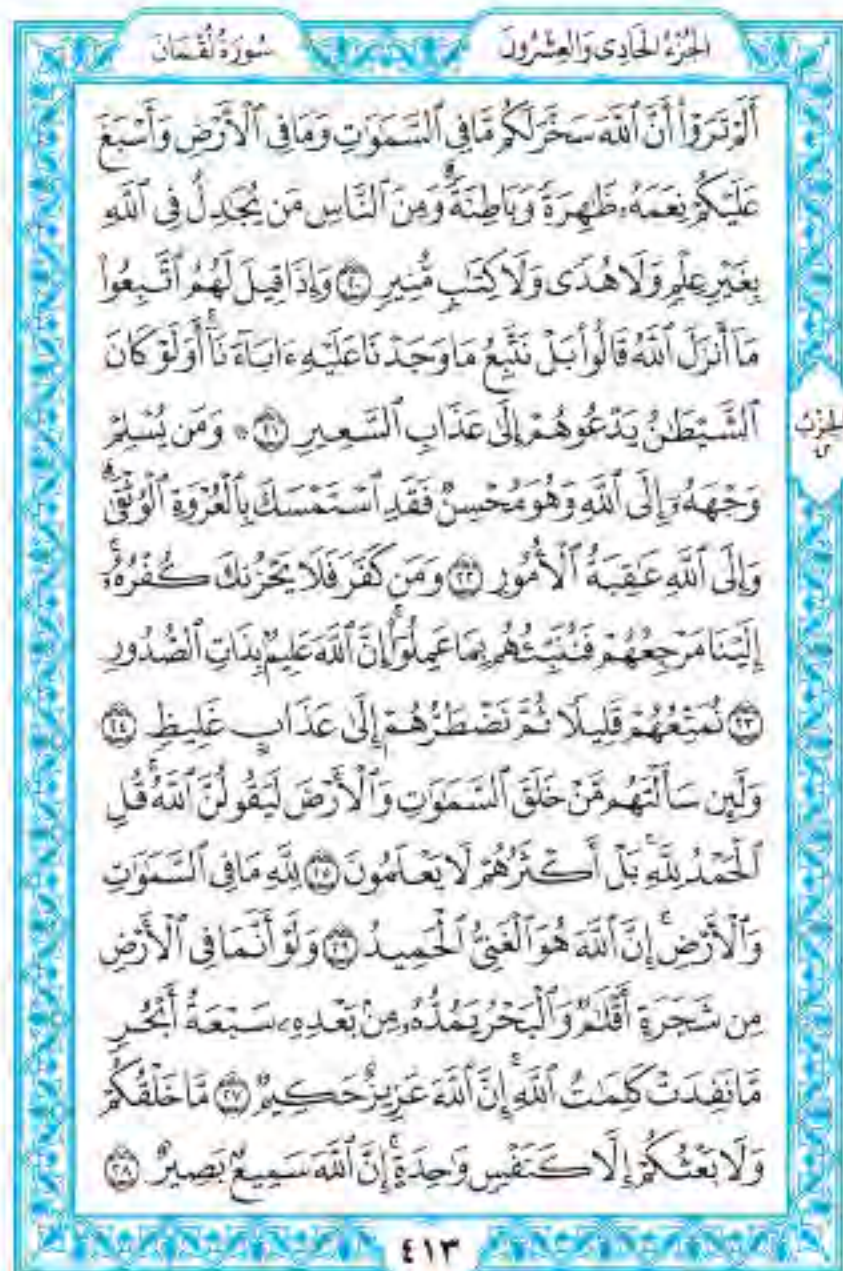 الجُزْءُ الحَادِي وَالعِشْرُونَ
سُورَةُ لُقْمَانَ
أَلَمْ تَرَوْا۟ أَنَّ ٱللَّهَ سَخَّرَ لَكُم مَّا فِى ٱلسَّمَٰوَٰتِ وَمَا فِى ٱلْأَرْضِ وَأَسْبَغَ
عَلَيْكُمْ نِعَمَهُۥ ظَٰهِرَةً وَبَاطِنَةً ۗ وَمِنَ ٱلنَّاسِ مَن يُجَٰدِلُ فِى ٱللَّهِ
بِغَيْرِ عِلْمٍ وَلَا هُدًى وَلَا كِتَٰبٍ مُّنِيرٍ ٢٠ وَإِذَا قِيلَ لَهُمُ ٱتَّبِعُوا۟
مَآ أَنزَلَ ٱللَّهُ قَالُوا۟ بَلْ نَتَّبِعُ مَا وَجَدْنَا عَلَيْهِ ءَابَآءَنَآ ۚ أَوَلَوْ كَانَ
ٱلشَّيْطَٰنُ يَدْعُوهُمْ إِلَىٰ عَذَابِ ٱلسَّعِيرِ ٢١ ۞ وَمَن يُسْلِمْ
الحِزْبُ
٤٢
وَجْهَهُۥٓ إِلَى ٱللَّهِ وَهُوَ مُحْسِنٌ فَقَدِ ٱسْتَمْسَكَ بِٱلْعُرْوَةِ ٱلْوُثْقَىٰ ۗ
وَإِلَى ٱللَّهِ عَٰقِبَةُ ٱلْأُمُورِ ٢٢ وَمَن كَفَرَ فَلَا يَحْزُنكَ كُفْرُهُۥٓ ۚ
إِلَيْنَا مَرْجِعُهُمْ فَنُنَبِّئُهُم بِمَا عَمِلُوٓا۟ ۚ إِنَّ ٱللَّهَ عَلِيمٌۢ بِذَاتِ ٱلصُّدُورِ
٢٣ نُمَتِّعُهُمْ قَلِيلًا ثُمَّ نَضْطَرُّهُمْ إِلَىٰ عَذَابٍ غَلِيظٍ ٢٤
وَلَئِن سَأَلْتَهُم مَّنْ خَلَقَ ٱلسَّمَٰوَٰتِ وَٱلْأَرْضَ لَيَقُولُنَّ ٱللَّهُ ۚ قُلِ
ٱلْحَمْدُ لِلَّهِ ۚ بَلْ أَكْثَرُهُمْ لَا يَعْلَمُونَ ٢٥ لِلَّهِ مَا فِى ٱلسَّمَٰوَٰتِ
وَٱلْأَرْضِ ۚ إِنَّ ٱللَّهَ هُوَ ٱلْغَنِىُّ ٱلْحَمِيدُ ٢٦ وَلَوْ أَنَّمَا فِى ٱلْأَرْضِ
مِن شَجَرَةٍ أَقْلَٰمٌ وَٱلْبَحْرُ يَمُدُّهُۥ مِنۢ بَعْدِهِۦ سَبْعَةُ أَبْحُرٍ
مَّا نَفِدَتْ كَلِمَٰتُ ٱللَّهِ ۗ إِنَّ ٱللَّهَ عَزِيزٌ حَكِيمٌ ٢٧ مَّا خَلْقُكُمْ
وَلَا بَعْثُكُمْ إِلَّا كَنَفْسٍ وَٰحِدَةٍ ۗ إِنَّ ٱللَّهَ سَمِيعٌۢ بَصِيرٌ ٢٨
٤١٣